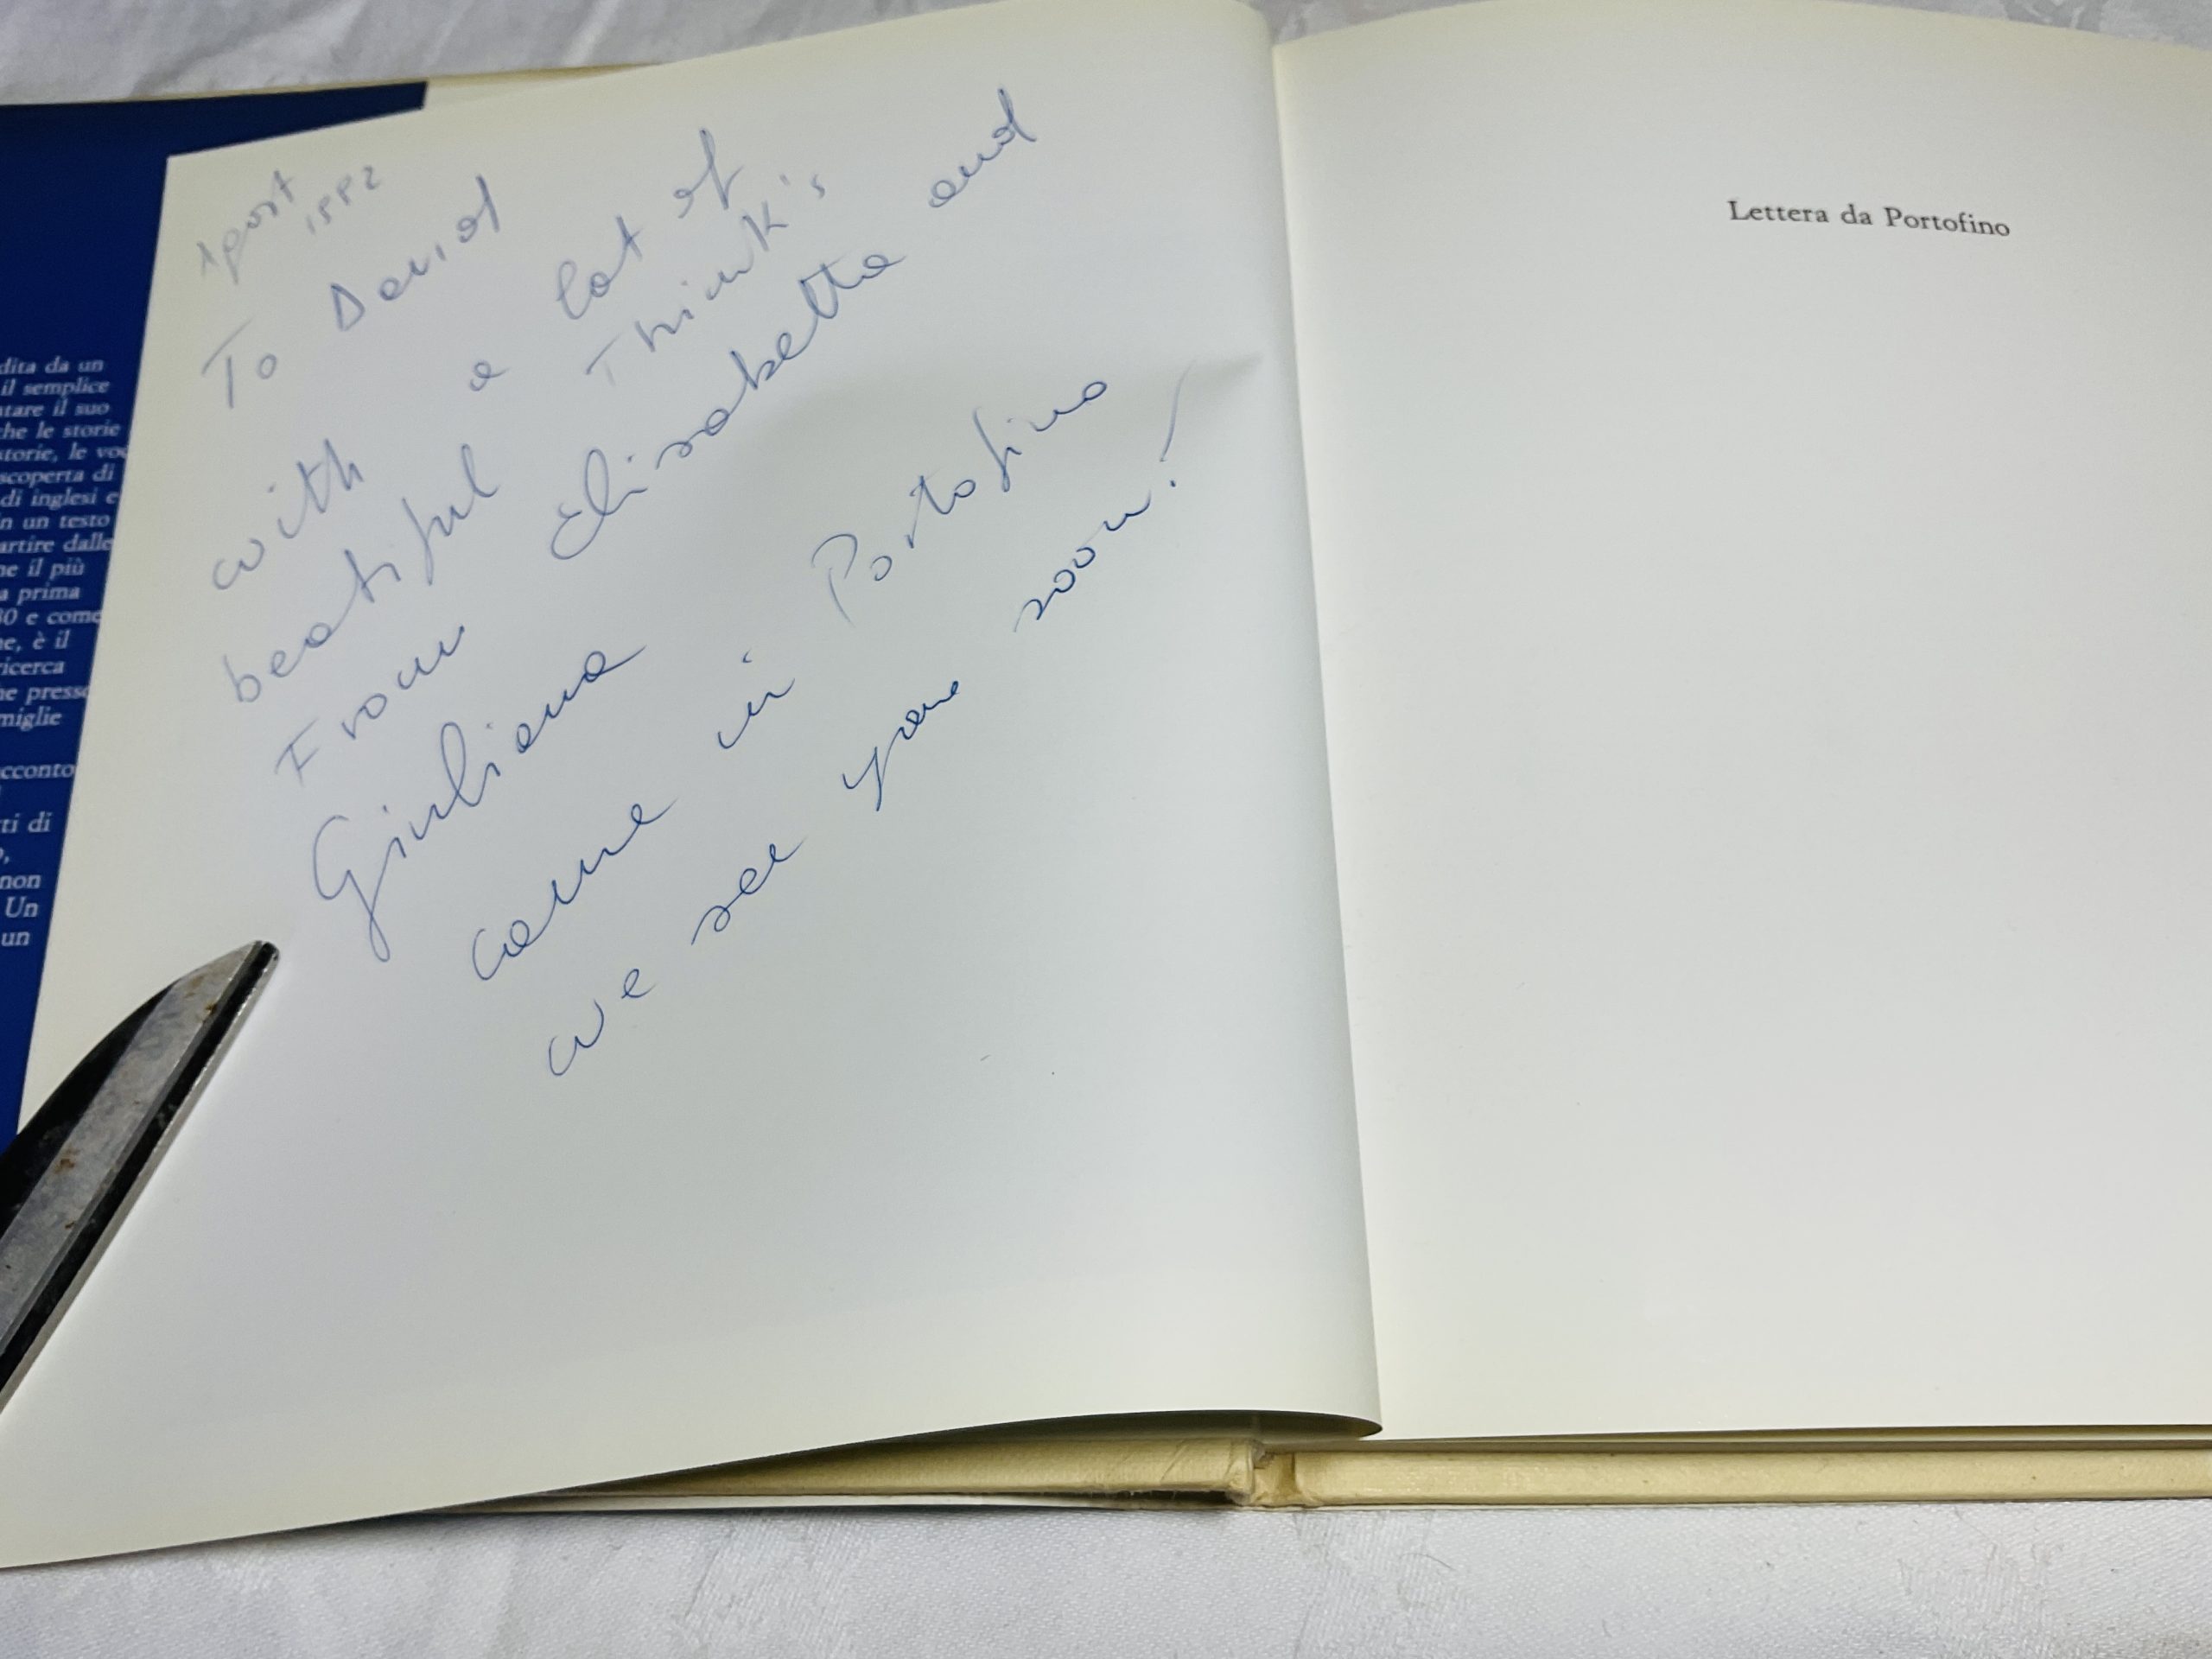 dita da un
il semplice
ntare il suo
che le storie
storie, le voc
scoperta di
di inglesi e
in un testo
artire dalle
ne il più
a prima
30 e come
ne, è il
ricerca
he presso
miglie
cconto
ti di
o,
non
Un
un
1992
To David
with a lot of
beatiful Think's
From Elisabetta and
Giuliana
come in Portofino
we see you soon!
Lettera da Portofino